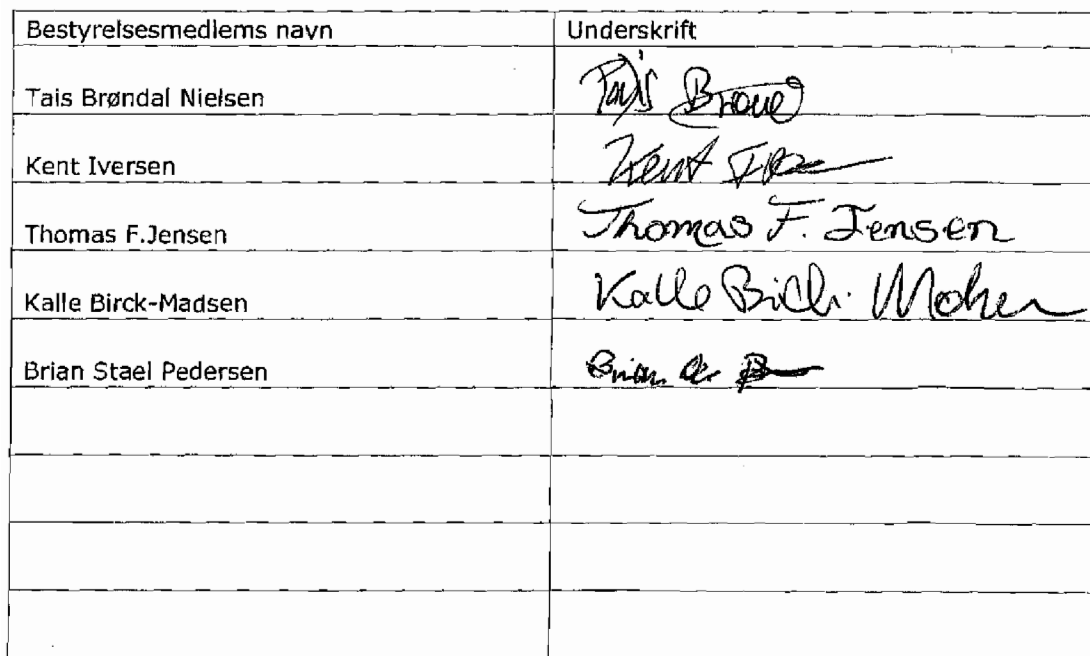 Bestyrelsesmedlems navn Underskrift
Tais Brøndal Nielsen Tais
Kent Iversen Kent
Thomas F.Jensen Thomas F. Jensen
Kalle Birck-Madsen Kalle
Brian Stael Pedersen Brian